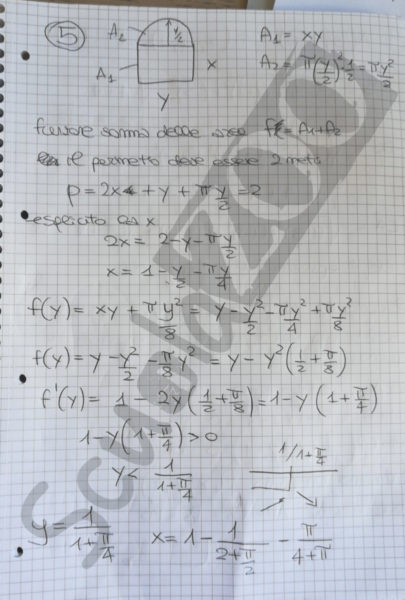 5 A₂ y/2 A₁ = xy
A₁ x A₂ = π(y/2)² 1/2 = πy²/2
y
somma delle aree f = A₁+A₂
il perimetro deve essere 2 metri
p = 2x + y + π y/2 = 2
esplicito x
2x = 2-y-π y/2
x = 1 - y/2 - πy/4
f(y) = xy + π y²/8 = y - y²/2 - πy²/4 + πy²/8
f(y) = y - y²/2 - π/8 y² = y - y² (1/2 + π/8)
f'(y) = 1 - 2y (1/2 + π/8) = 1 - y (1 + π/4)
1 - y (1 + π/4) > 0
1/1+π/4
y < 1/(1+π/4)
y = 1/(1+π/4) x = 1 - 1/(2+π/2) - π/(4+π)
ScuolaZOO